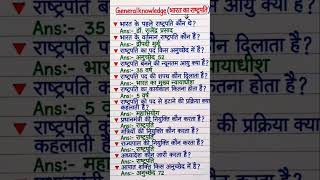 General knowledge (भारत का राष्ट्रपति)
भारत के पहले राष्ट्रपति कौन थे?
Ans:- डॉ. राजेंद्र प्रसाद
भारत के वर्तमान राष्ट्रपति कौन है?
Ans:- द्रौपदी मुर्मू
राष्ट्रपति का पद किस अनुच्छेद में है?
Ans:- अनुच्छेद 52
राष्ट्रपति बनने की न्यूनतम आयु क्या है?
Ans:- 35 वर्ष
राष्ट्रपति पद की शपथ कौन दिलाता है?
Ans:- भारत का मुख्य न्यायाधीश
राष्ट्रपति का कार्यकाल कितना होता है?
Ans:- 5 वर्ष
राष्ट्रपति को पद से हटाने की प्रक्रिया क्या कहलाती है?
Ans:- महाभियोग
प्रधानमंत्री की नियुक्ति कौन करता है?
Ans:- राष्ट्रपति
मंत्रियों की नियुक्ति कौन करता है?
Ans:- राष्ट्रपति
राज्यपाल की नियुक्ति कौन करता है?
Ans:- राष्ट्रपति
अध्यादेश कौन जारी करता है?
Ans:- राष्ट्रपति
शक्ति किस अनुच्छेद में है?
Ans:- अनुच्छेद 72